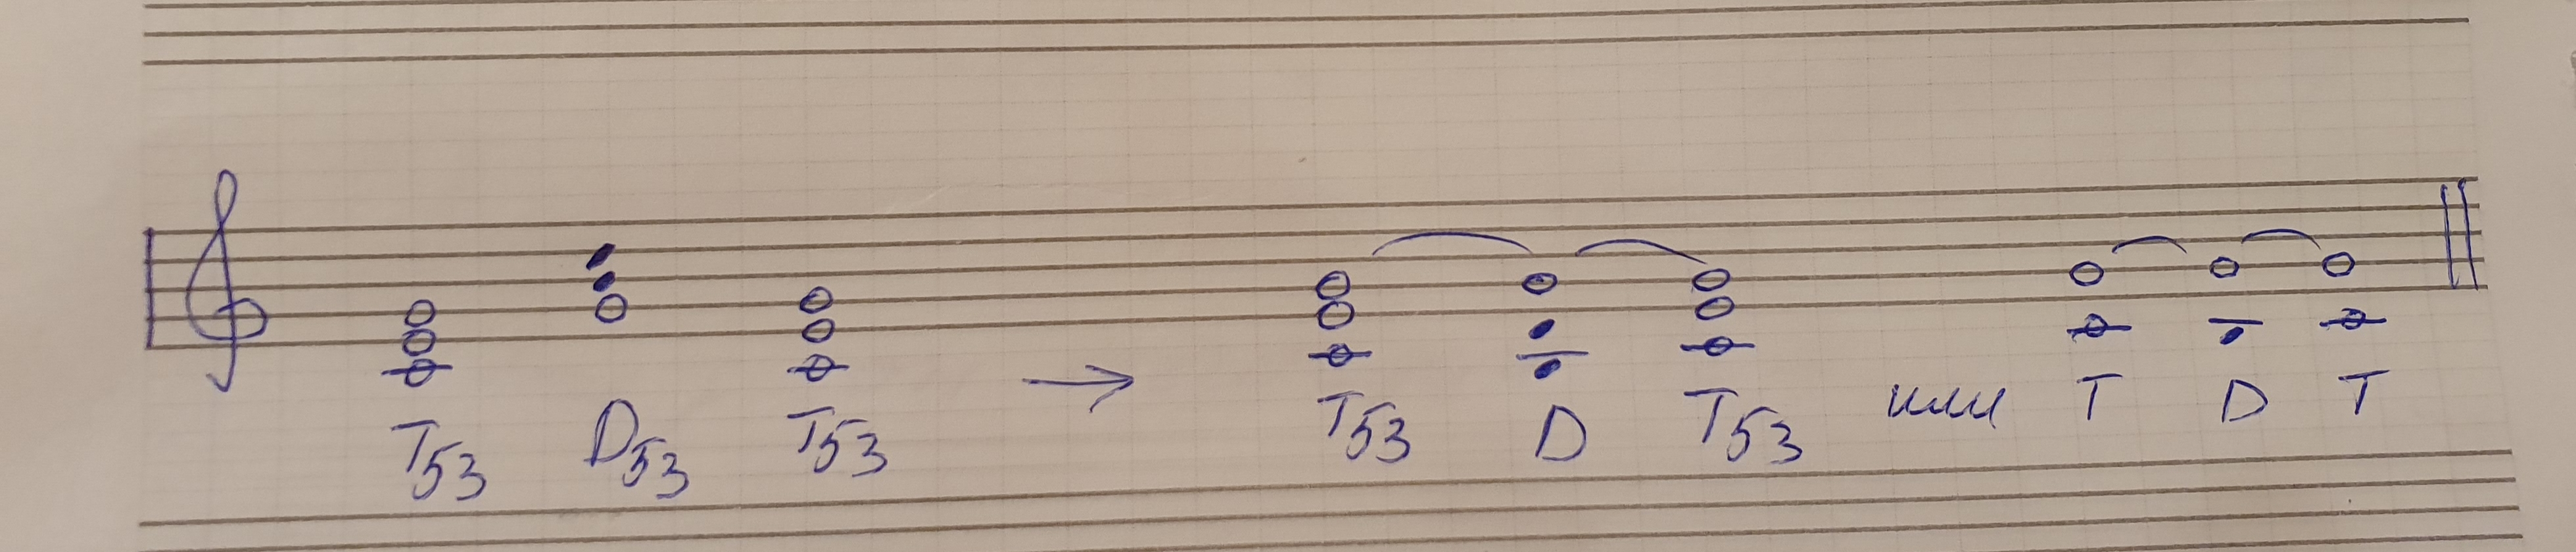 T53 D53 T53 → T53 D T53 или T D T